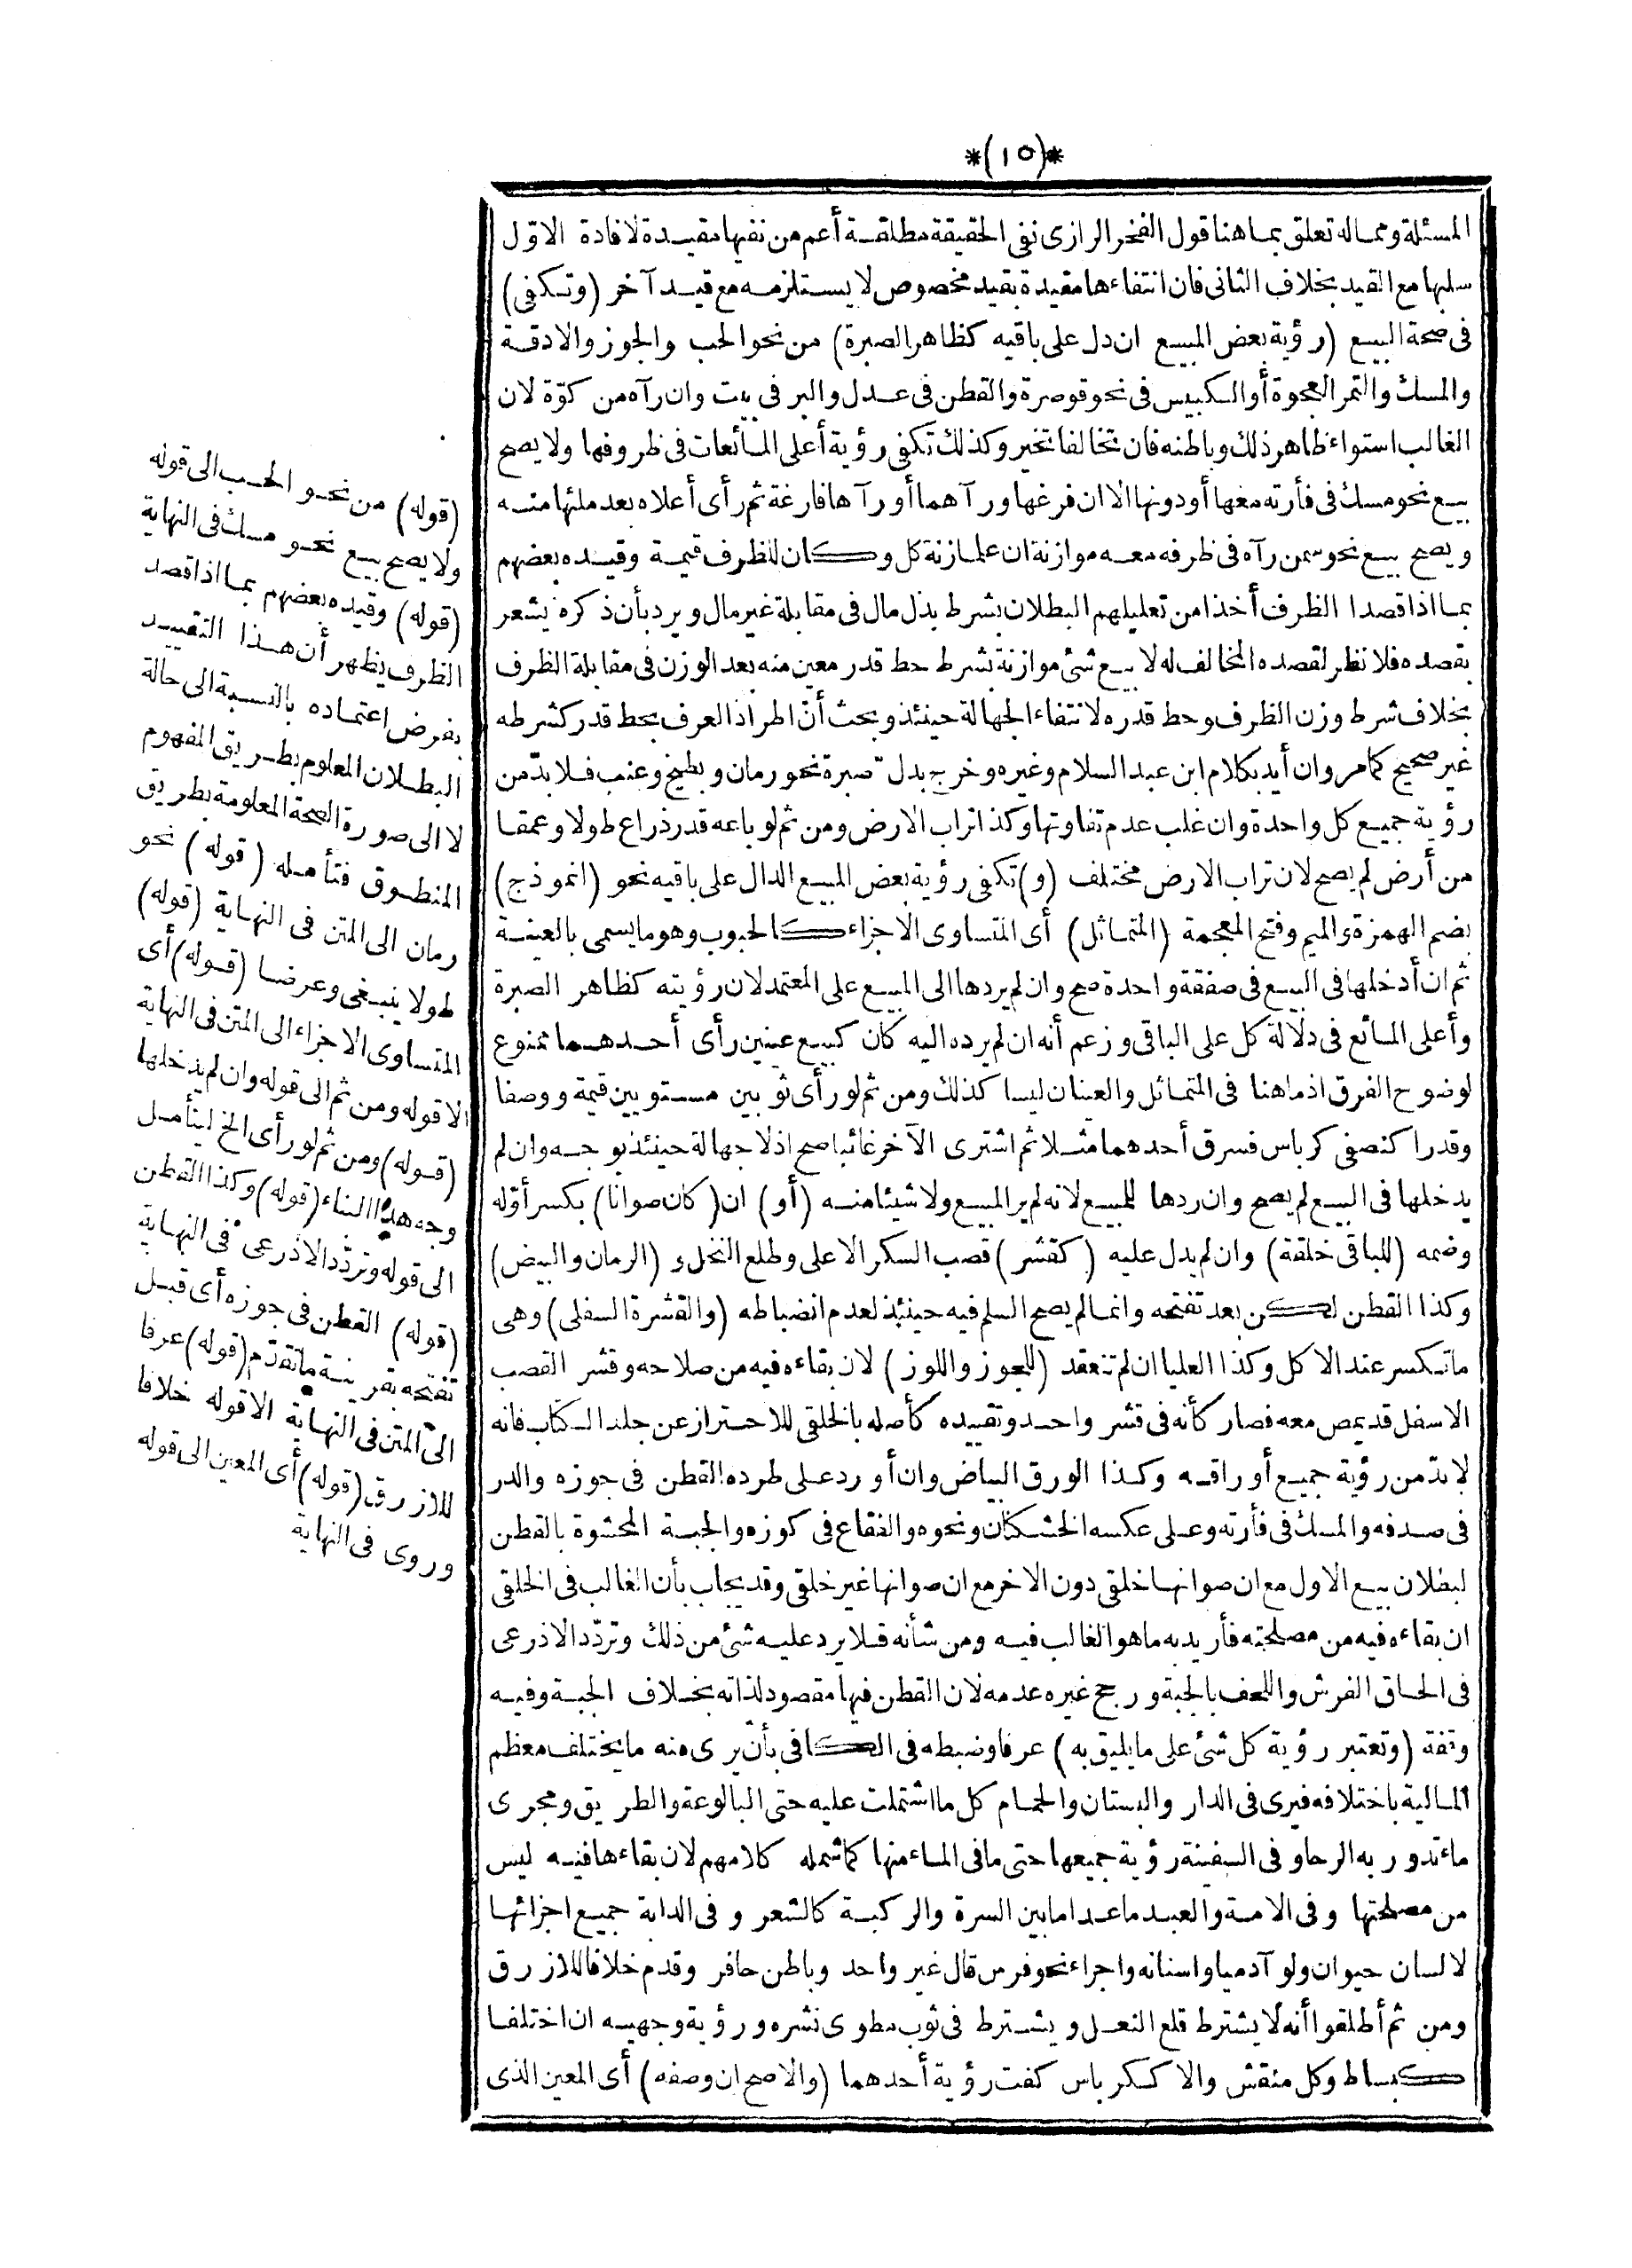 *(١٥)*
المسئلة ومما له تعلق بما هنا قول الفخر الرازى نفى الحقيقة مطلقة أعم من نفيها مقيدة لافادة الاوّل
سلبها مع القيد بخلاف الثانى فان انتفاءها مقيدة بقيد مخصوص لا يستلزمه مع قيد آخر (وتكفى)
فى صحة البيع (رؤية بعض المبيع ان دل على باقيه كظاهر الصبرة) من نحو الحب والجوز والادقة
والمسك والتمر العجوة أو الكبيس فى نحو قوصرة والقطن فى عدل والبر فى بيت وان رآه من كوّة لان
الغالب استواء ظاهر ذلك وباطنه فان تخالفا تخير وكذلك تكفى رؤية أعلى المائعات فى ظروفها ولا يصح
بيع نحو مسك فى فأرته معها أو دونها الا ان فرغها ورآهما أو رآها فارغة ثم رأى أعلاه بعد ملئها منه
ويصح بيع نحو سمن رآه فى ظرفه معه موازنة ان علما زنة كل وكان للظرف قيمة وقيده بعضهم
بما اذا قصدا الظرف أخذا من تعليلهم البطلان بشرط بذل مال فى مقابلة غير مال ويرد بأن ذكره يشعر
بقصده فلا نظر لقصده المخالف له لا بيع شئ موازنة بشرط حط قدر معين منه بعد الوزن فى مقابلة الظرف
بخلاف شرط وزن الظرف وحط قدره لانتفاء الجهالة حينئذ وبحث أنّ اطراد العرف بحط قدر كشرطه
غير صحيح كما مر وان أيد بكلام ابن عبد السلام وغيره وخرج بدل صبرة نحو رمان وبطيخ وعنب فلا بدّ من
رؤية جميع كل واحدة وان غلب عدم تفاوتها وكذا تراب الارض ومن ثم لو باعه قدر ذراع طولا وعمقا
من أرض لم يصح لان تراب الارض مختلف (و) تكفى رؤية بعض المبيع الدال على باقيه نحو (انموذج)
بضم الهمزة والميم وفتح المعجمة (المتماثل) أى المتساوى الاجزاء كالحبوب وهو ما يسمى بالعينة
ثم ان أدخلها فى البيع فى صفقة واحدة صح وان لم يردها الى المبيع على المعتمد لان رؤيته كظاهر الصبرة
وأعلى المائع فى دلالة كل على الباقى وزعم أنه ان لم يرده اليه كان كبيع عينين رأى أحدهما ممنوع
لوضوح الفرق اذ ما هنا فى المتماثل والعينان ليسا كذلك ومن ثم لو رأى ثوبين مستويين قيمة ووصفا
وقدرا كنصفى كرباس فسرق أحدهما مثلا ثم اشترى الآخر غائبا صح اذ لا جهالة حينئذ بوجه وان لم
يدخلها فى البيع لم يصح وان ردها للمبيع لانه لم ير المبيع ولا شيئا منه (أو) ان (كان صوانا) بكسر أوّله
وضمه (للباقى خلقة) وان لم يدل عليه (كقشر) قصب السكر الاعلى وطلع النخل و (الرمان والبيض)
وكذا القطن لكن بعد تفتحه وانما لم يصح السلم فيه حينئذ لعدم انضباطه (والقشرة السفلى) وهى
ما تكسر عند الاكل وكذا العليا ان لم تنعقد (للجوز واللوز) لان بقاءه فيه من صلاحه وقشر القصب
الاسفل قد يمص معه فصار كأنه فى قشر واحد وتقييده كأصله بالخلقى للاحتراز عن جلد الكتاب فانه
لا بدّ من رؤية جميع أوراقه وكذا الورق البياض وان أورد على طرده القطن فى جوزه والدر
فى صدفه والمسك فى فأرته وعلى عكسه الخشكان ونحوه والفقاع فى كوزه والجبة المحشوة بالقطن
لبطلان بيع الاول مع ان صوانها خلقى دون الاخر مع ان صوانها غير خلقى وقد يجاب بأن الغالب فى الخلقى
ان بقاءه فيه من مصلحته فأريد به ما هو الغالب فيه ومن شأنه فلا يرد عليه شئ من ذلك وتردّد الاذرعى
فى الحاق الفرش واللحف بالجبة ورجح غيره عدمه لان القطن فيها مقصود لذاته بخلاف الجبة وفيه
وقفة (وتعتبر رؤية كل شئ على ما يليق به) عرفا وضبطه فى الكافى بأن يرى منه ما يختلف معظم
المالية باختلافه فيرى فى الدار والبستان والحمام كل ما اشتملت عليه حتى البالوعة والطريق ومجرى
ماء تدور به الرحا وفى السفينة رؤية جميعها حتى ما فى الماء منها كما شمله كلامهم لان بقاءها فيه ليس
من مصلحتها وفى الامة والعبد ما عدا ما بين السرة والركبة كالشعر وفى الدابة جميع اجزائها
لا لسان حيوان ولو آدميا واسنانه واجراء نحو فرس قال غير واحد وباطن حافر وقدم خلافا للازرق
ومن ثم أطلقوا أنه لا يشترط قلع النعل ويشترط فى ثوب مطوى نشره ورؤية وجهيه ان اختلفا
كبساط وكل منقش والا ككرباس كفت رؤية أحدهما (والاصح ان وصفه) أى المعين الذى
(قوله) من نحو الحب الى قوله
ولا يصح بيع نحو مسك فى النهاية
(قوله) وقيده بعضهم بما اذا قصد
الظرف يظهر أن هذا التقييد
بفرض اعتماده بالنسبة الى حالة
البطلان المعلوم بطريق المفهوم
لا الى صورة الصحة المعلومة بطريق
المنطوق فتأمله (قوله) نحو
رمان الى المتن فى النهاية (قوله)
طولا ينبغى وعرضا (قوله) أى
المتساوى الاجزاء الى المتن فى النهاية
الا قوله ومن ثم الى قوله وان لم يدخلها
(قوله) ومن ثم لو رأى الخ ليتأمل
وجه هذا البناء (قوله) وكذا القطن
الى قوله وتردّد الاذرعى فى النهاية
(قوله) القطن فى جوزه أى قبل
تفتحه بقرينة ما تقدّم (قوله) عرفا
الى المتن فى النهاية الا قوله خلافا
للازرق (قوله) أى المعين الى قوله
وروى فى النهاية